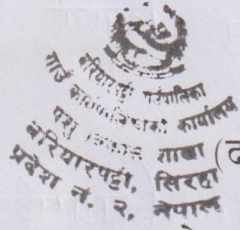 बरियारपट्टी गाउँपालिका
गाउँ कार्यपालिकाको कार्यालय
पशु शाखा
बरियारपट्टी, सिरहा
प्रदेश नं. २, नेपाल